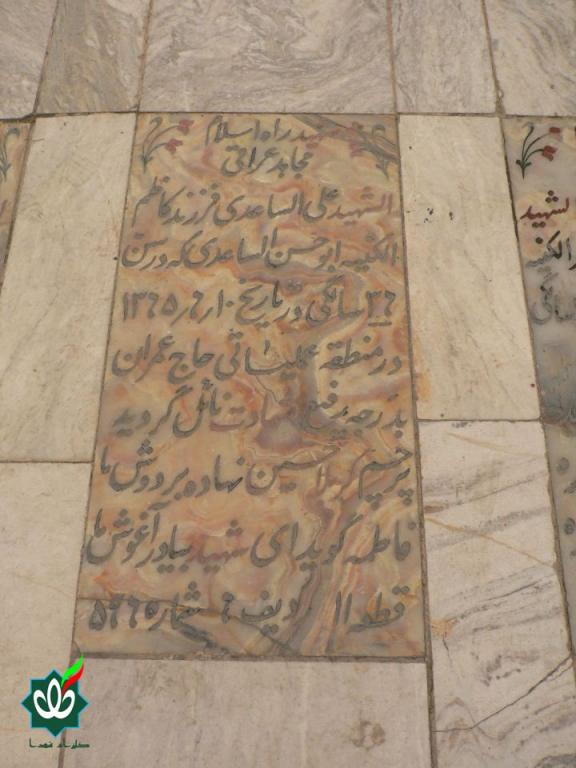 شهید راه اسلام
مجاهد عراقی
الشهید علی الساعدی فرزند کاظم
الکنیه ابوحسن الساعدی که در سن
۳۶ سالگی در تاریخ ۱۰ر۶ر۱۳۶۵
در منطقه عملیاتی حاج عمران
بدرجه رفیع شهادت نائل گردید
پرچم کربلا حسین نهاده بر دوش ما
فاطمه گوید ای شهید بیا در آغوش ما
قطعه ردیف ۶ شمار ۵۲۶۵
الشهید
الکنیه
سالگی
گلزار شهدا